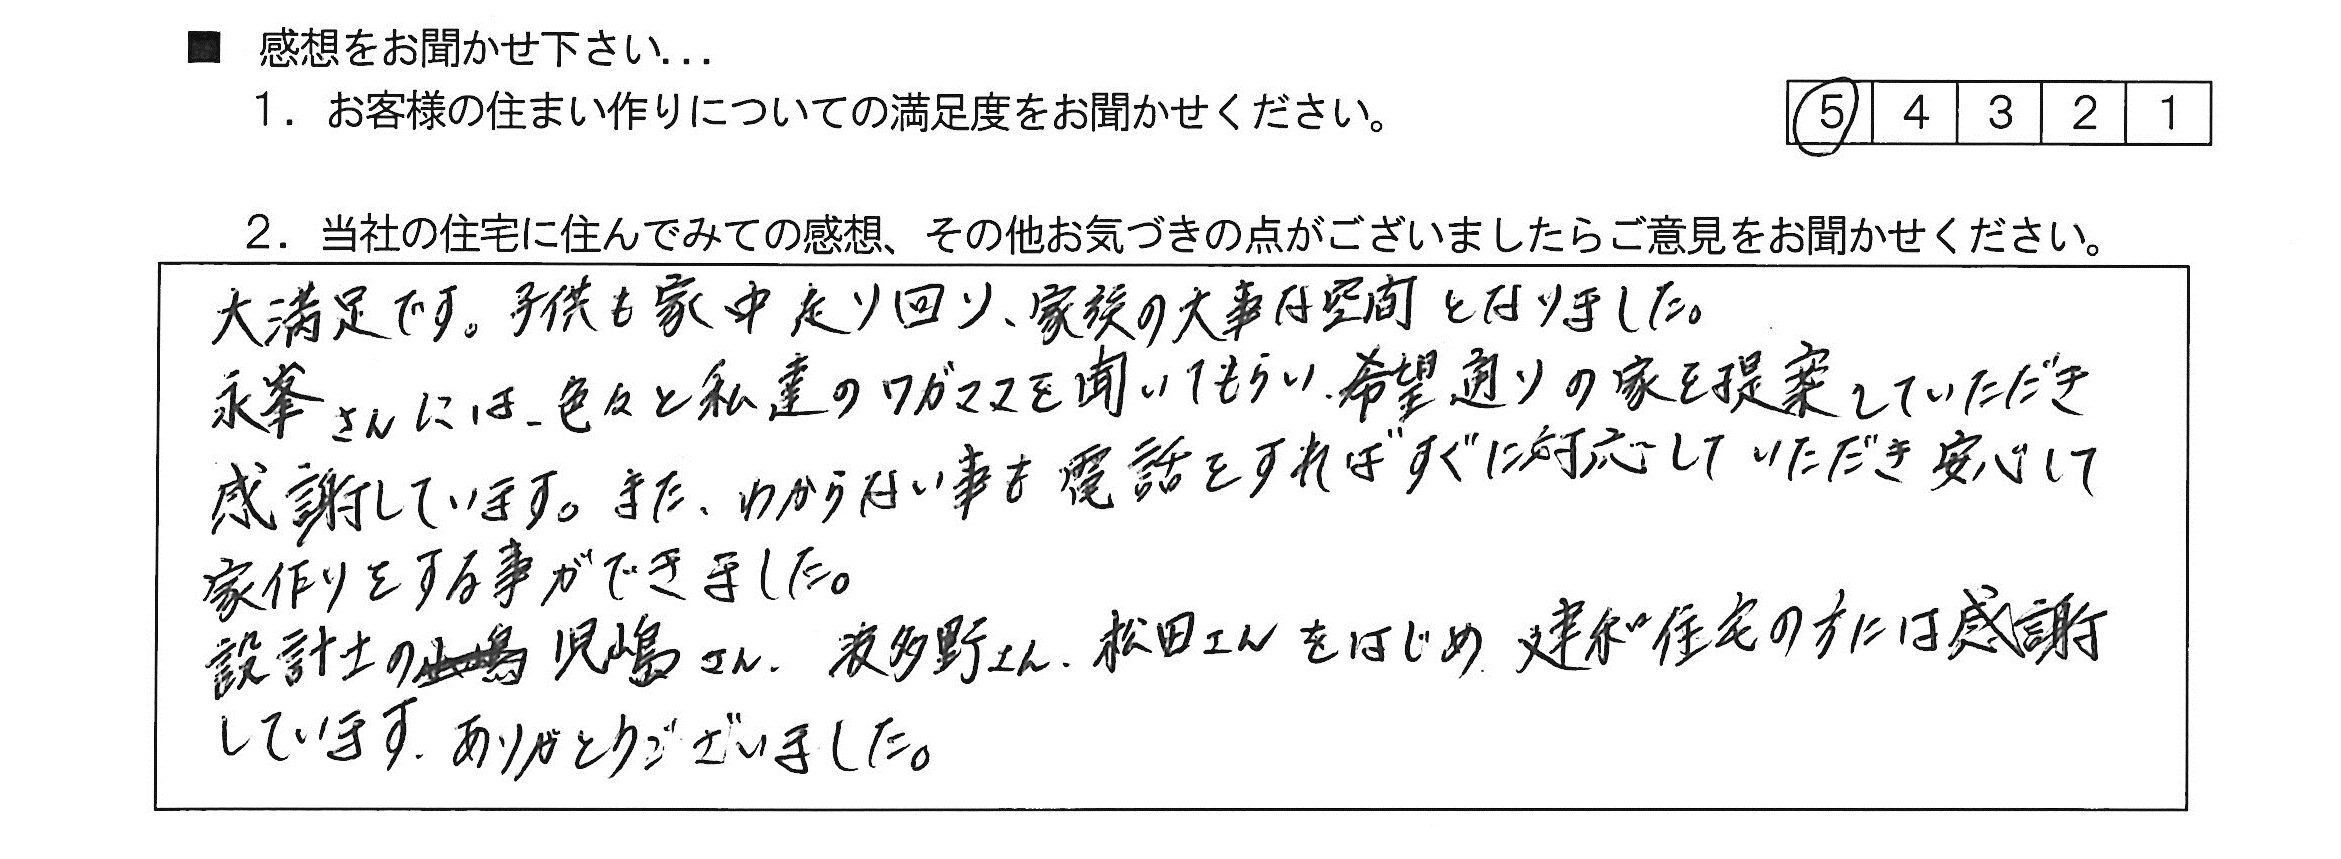 ■ 感想をお聞かせ下さい...
1．お客様の住まい作りについての満足度をお聞かせください。
5 4 3 2 1
2．当社の住宅に住んでみての感想、その他お気づきの点がございましたらご意見をお聞かせください。
大満足です。子供も家中走り回り、家族の大事な空間となりました。
永峯さんには、色々と私達のワガママを聞いてもらい、希望通りの家を提案していただき
感謝しています。また、わからない事も電話をすればすぐに対応していただき安心して
家作りをする事ができました。
設計士の児嶋さん、波多野さん、松田さんをはじめ、建和住宅の方には感謝
しています。ありがとうございました。